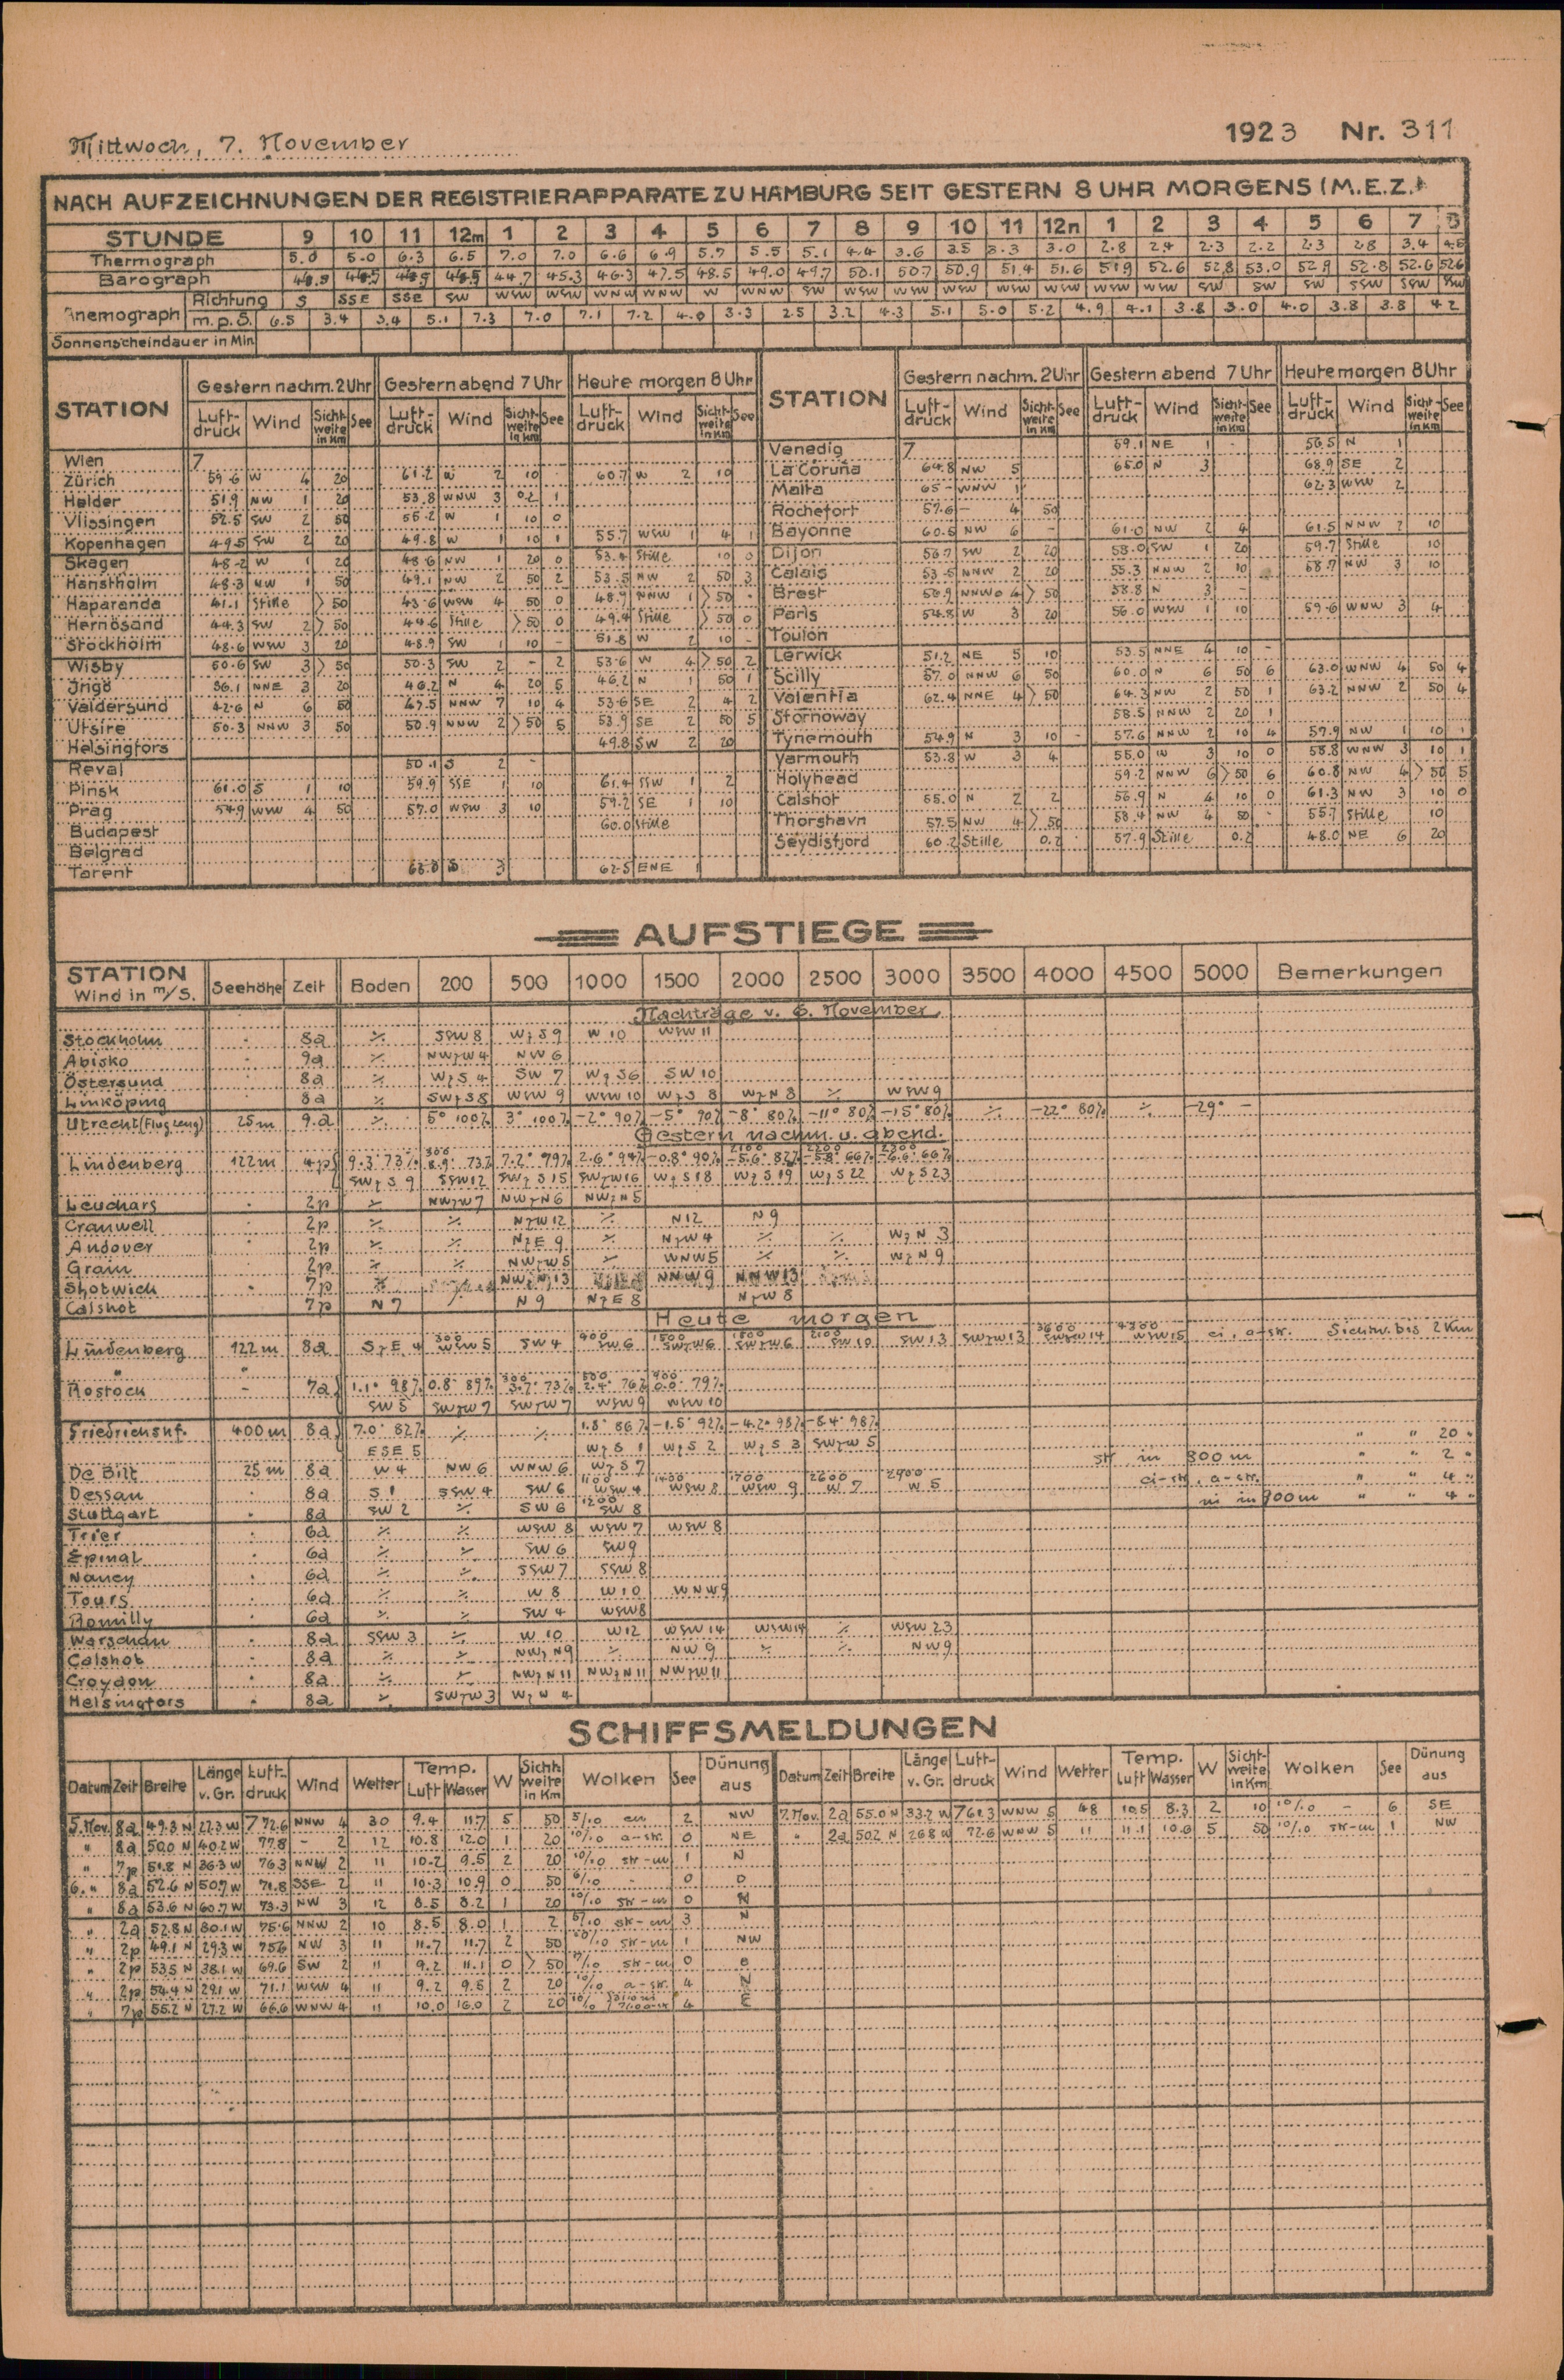 Mittwoch, 7. November 1923 Nr. 311
NACH AUFZEICHNUNGEN DER REGISTRIERAPPARATE ZU HAMBURG SEIT GESTERN 8 UHR MORGENS (M.E.Z.)
STUNDE 9 10 11 12m 1 2 3 4 5 6 7 8 9 10 11 12n 1 2 3 4 5 6 7 8
Thermograph 5.0 5.0 6.3 6.5 7.0 7.0 6.6 6.9 5.7 5.5 5.1 4.4 3.6 3.5 3.3 3.0 2.8 2.4 2.3 2.2 2.3 2.8 3.4 4.5
Barograph 44.7 45.3 46.3 47.5 48.5 49.0 49.7 50.1 50.7 50.9 51.4 51.6 51.9 52.6 52.8 53.0 52.9 52.8 52.6 52.6
Anemograph Richtung S SSE SSE SW WSW WSW WNW WNW W WNW SW WSW WSW WSW WSW WSW WSW WSW SW SW SW SSW SSW SW
m.p.S. 6.5 3.4 3.4 5.1 7.3 7.0 7.1 7.2 4.0 3.3 2.5 3.2 4.3 5.1 5.0 5.2 4.9 4.1 3.8 3.0 4.0 3.8 3.8 4.2
Sonnenscheindauer in Min
STATION Gestern nachm. 2 Uhr Gestern abend 7 Uhr Heute morgen 8 Uhr STATION Gestern nachm. 2 Uhr Gestern abend 7 Uhr Heute morgen 8 Uhr
Luft-druck Wind Sicht-weite in Km See Luft-druck Wind Sicht-weite in Km See Luft-druck Wind Sicht-weite in Km See Luft-druck Wind Sicht-weite in Km See Luft-druck Wind Sicht-weite in Km See Luft-druck Wind Sicht-weite in Km See
Wien 7
Zürich 59.6 W 4 20 61.2 W 2 10 60.7 W 2 10
Helder 51.9 NW 1 20 53.8 WNW 3 0.2 1
Vlissingen 52.5 SW 2 50 55.2 W 1 10 0
Kopenhagen 49.5 SW 2 20 49.8 W 1 10 1 55.7 WSW 1 4 1
Skagen 48.2 W 1 20 48.6 NW 1 20 0 53.4 Stille 10 0
Hanstholm 48.3 NW 1 50 49.1 NW 2 50 2 53.5 NW 2 50 3
Haparanda 41.1 Stille > 50 43.6 WSW 4 50 0 48.9 NNW 1 > 50 -
Hernösand 44.3 SW 2 > 50 44.6 Stille > 50 0 49.4 Stille > 50 0
Stockholm 48.6 WSW 3 20 48.9 SW 1 10 - 51.8 W 2 10 -
Wisby 50.6 SW 3 > 50 50.3 SW 2 - 2 53.6 W 4 > 50 2
Ingö 36.1 NNE 3 20 40.2 N 4 20 5 46.2 N 1 50 1
Valdersund 42.6 N 6 50 47.5 NNW 7 10 4 53.6 SE 2 4 2
Utsire 50.3 NNW 3 50 50.9 NNW 2 > 50 5 53.9 SE 2 50 5
Helsingfors 49.8 SW 2 20
Reval 50.1 S 2 -
Pinsk 61.0 S 1 10 59.9 SSE 1 10 61.4 SSW 1 2
Prag 54.9 WSW 4 50 57.0 WSW 3 10 59.2 SE 1 10
Budapest 60.0 Stille
Belgrad
Tarent 3 62.5 ENE 1
Venedig 7 59.1 NE 1 - 56.5 N 1
La Coruña 64.8 NW 5 65.0 N 3 68.9 SE 2
Malta 65 - WNW 1 62.3 WNW 2
Rochefort 57.6 - 4 50
Bayonne 60.5 NW 6 - 61.0 NW 2 4 61.5 NNW 2 10
Dijon 56.7 SW 2 20 58.0 SW 1 20 59.7 Stille 10
Calais 53.5 NNW 2 20 55.3 NNW 2 10 58.7 NW 3 10
Brest 56.9 NNW 4 > 50 58.8 N 3 -
Paris 54.8 W 3 20 56.0 WSW 1 10 59.6 WNW 3 4
Toulon
Lerwick 51.2 NE 5 10 53.5 NNE 4 10 -
Scilly 57.0 NNW 6 50 60.0 N 6 50 6 63.0 WNW 4 50 4
Valentia 62.4 NNE 4 > 50 64.3 NW 2 50 1 63.2 NNW 2 50 4
Stornoway 58.5 NNW 2 20 1
Tynemouth 54.9 N 3 10 - 57.6 NNW 2 10 4 57.9 NW 1 10 1
Yarmouth 53.8 W 3 4 55.0 W 3 10 0 58.8 WNW 3 10 1
Holyhead 59.2 NNW 6 > 50 6 60.8 NW 4 > 50 5
Calshot 55.0 N 2 2 56.9 N 4 10 0 61.3 NW 3 10 0
Thorshavn 57.5 NW 4 > 50 58.4 NW 4 50 - 55.7 Stille 10
Seydisfjord 60.2 Stille 0.2 57.9 Stille 0.2 48.0 NE 6 20
AUFSTIEGE
STATION Wind in m/S. Seehöhe Zeit Boden 200 500 1000 1500 2000 2500 3000 3500 4000 4500 5000 Bemerkungen
Nachträge v. 6. November.
Stockholm 8a ٪ SSW 8 WzS 9 W 10 WSW 11
Abisko 9a ٪ NWzW 4 NW 6
Östersund 8a ٪ WzS 4 SW 7 WzS 6 SW 10
Linköping 8a ٪ SWzS 8 WSW 9 WSW 10 WzS 8 WzN 8 ٪ WSW 9
Utrecht (Flugzeug) 25 m 9.a ٪ 5° 100% 3° 100% -2° 90% -5° 90% -8° 80% -11° 80% -15° 80% ٪ -22° 80% ٪ -29° -
Gestern nachm. u. abend.
300 2100 2200 2300
Lindenberg 122 m 4p 9.3° 73% 8.9° 73% 7.2° 79% 2.6° 94% -0.8° 90% -5.6° 82% -5.8° 66% -6.6° 66%
SWzS 9 SSW 12 SWzS 15 SWzW 16 WzS 18 WzS 19 WzS 22 WzS 23
Leuchars 2p ٪ NWzW 7 NWzN 6 NWzN 5
Cranwell 2p ٪ ٪ NzW 12 ٪ N 12 N 9
Andover 2p ٪ ٪ NzE 9 ٪ NzW 4 ٪ ٪ WzN 3
Grain 2p ٪ ٪ NWzW 5 ٪ WNW 5 ٪ ٪ WzN 9
Shotwick 7p ٪ NWzN 13 NNW 9 NNW 13
Calshot 7p N 7 ٪ N 9 NzE 8 NzW 8
Heute morgen
300 900 1500 1800 2100 3600 4300
Lindenberg 122 m 8a SzE 4 WSW 5 SW 4 SW 6 SWzW 6 SWzW 6 SW 10 SW 13 SWzW 13 SWzW 14 WSW 15 ci, a-str. Sichtw. bis 2 Km
" "
300 500 900
Rostock - 7a 1.1° 98% 0.8° 89% 3.7° 73% 2.4° 76% 0.0° 79%
SW 5 SWzW 7 SWzW 7 WSW 9 WSW 10
Friedrichshf. 400 m 8a 7.0° 82% ٪ ٪ 1.8° 86% -1.5° 92% -4.2° 98% -5.4° 98% " " 20 "
ESE 5 WzS 1 WzS 2 WzS 3 SWzW 5
De Bilt 25 m 8a W 4 NW 6 WNW 6 WzS 7 str in 800 m " " 2 "
1100 1400 1700 2600 2900
Dessau 8a S 1 SSW 4 SW 6 WSW 4 WSW 8 WSW 9 W 7 W 5 ci-str, a-str. " " 4 "
1200
Stuttgart 8a SW 2 ٪ SW 6 SW 8 in 900 m " " 4 "
Trier 6a ٪ ٪ WSW 8 WSW 7 WSW 8
Épinal 6a ٪ ٪ SW 6 SW 9
Nancy 6a ٪ ٪ SSW 7 SSW 8
Tours 6a ٪ ٪ W 8 W 10 WNW 9
Romilly 6a ٪ ٪ SW 4 WSW 8
Warschau 8a SSW 3 ٪ W 10 W 12 WSW 14 WSW 14 ٪ WSW 23
Calshot 8a ٪ ٪ NWzN 9 ٪ NW 9 ٪ ٪ NW 9
Croydon 8a ٪ ٪ NWzN 11 NWzN 11 NWzW 11
Helsingfors 8a ٪ SWzW 3 WzW 4
SCHIFFSMELDUNGEN
Datum Zeit Breite Länge v. Gr. Luft-druck Wind Wetter Temp. Luft Wasser W Sicht-weite in Km Wolken See Dünung aus Datum Zeit Breite Länge v. Gr. Luft-druck Wind Wetter Temp. Luft Wasser W Sicht-weite in Km Wolken See Dünung aus
5. Nov. 8a 49.3 N 27.3 W 772.6 NNW 4 30 9.4 11.7 5 50 5/10 cu 2 NW 7. Nov. 2a 55.0 N 33.2 W 761.3 WNW 5 48 10.5 8.3 2 10 10/10 - 6 SE
" 8a 50.0 N 40.2 W 77.8 - 2 12 10.8 12.0 1 20 10/10 a-str. 0 NE " 2a 50.2 N 26.8 W 72.6 WNW 5 11 11.1 10.6 5 50 10/10 str-cu 1 NW
" 7p 51.8 N 36.3 W 76.3 NNW 2 11 10.2 9.5 2 20 10/10 str-cu 1 N
6. " 8a 52.6 N 50.7 W 71.8 SSE 2 11 10.3 10.9 0 50 6/10 - 0 0
" 8a 53.6 N 60.7 W 73.3 NW 3 12 8.5 8.2 1 20 10/10 str-cu 0 N
" 2a 52.8 N 30.1 W 75.6 NNW 2 10 8.5 8.0 1 2 str-cu 3 N
" 2p 49.1 N 29.3 W 75.6 NW 3 11 11.7 11.7 2 50 10/10 str-cu 1 NW
" 2p 53.5 N 38.1 W 69.6 SW 2 11 9.2 11.1 0 > 50 str-cu 0
" 2p 54.4 N 29.1 W 71.1 WSW 4 11 9.2 9.5 2 20 10/10 a-str. 4 N
" 7p 55.2 N 27.2 W 66.6 WNW 4 11 10.0 16.0 2 20 10/10 4 E